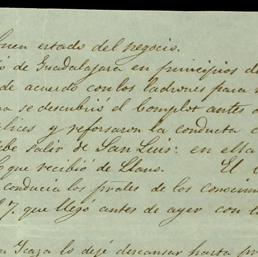 buen estado del negocio.
ó de Guadalajara en principios de
de acuerdo con los ladrones para
se descubrió el complot antes
lices y reforsaron la conducta
ebe salir de San Luis: en ella
que recibió de Llano. El
conducia los prales de los conocim
7. que llegó antes de ayer con
Icaza lo dejé descansar hasta